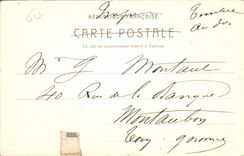 RÉPUBLIQUE FRANÇAISE
CARTE POSTALE
Ce côté est exclusivement réservé à l'adresse
Mr G Montaut
40 Rue de la Banque
Montauban
Tarn Garonne